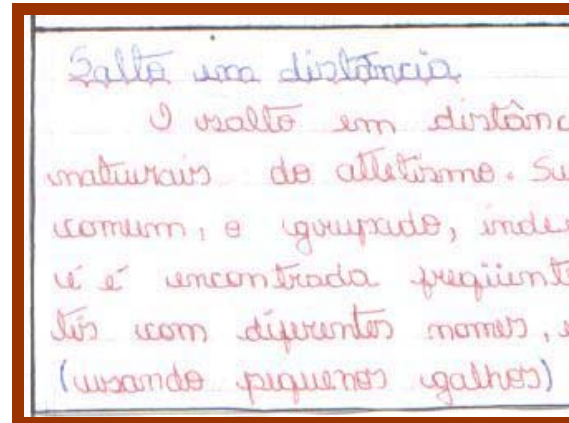 Salto em distância
O salto em distânc
naturais do atletismo. Su
comum, o grupado, inde
é encontrada freqüent
tis com diferentes nomes, e
(usando pequenos galhos)